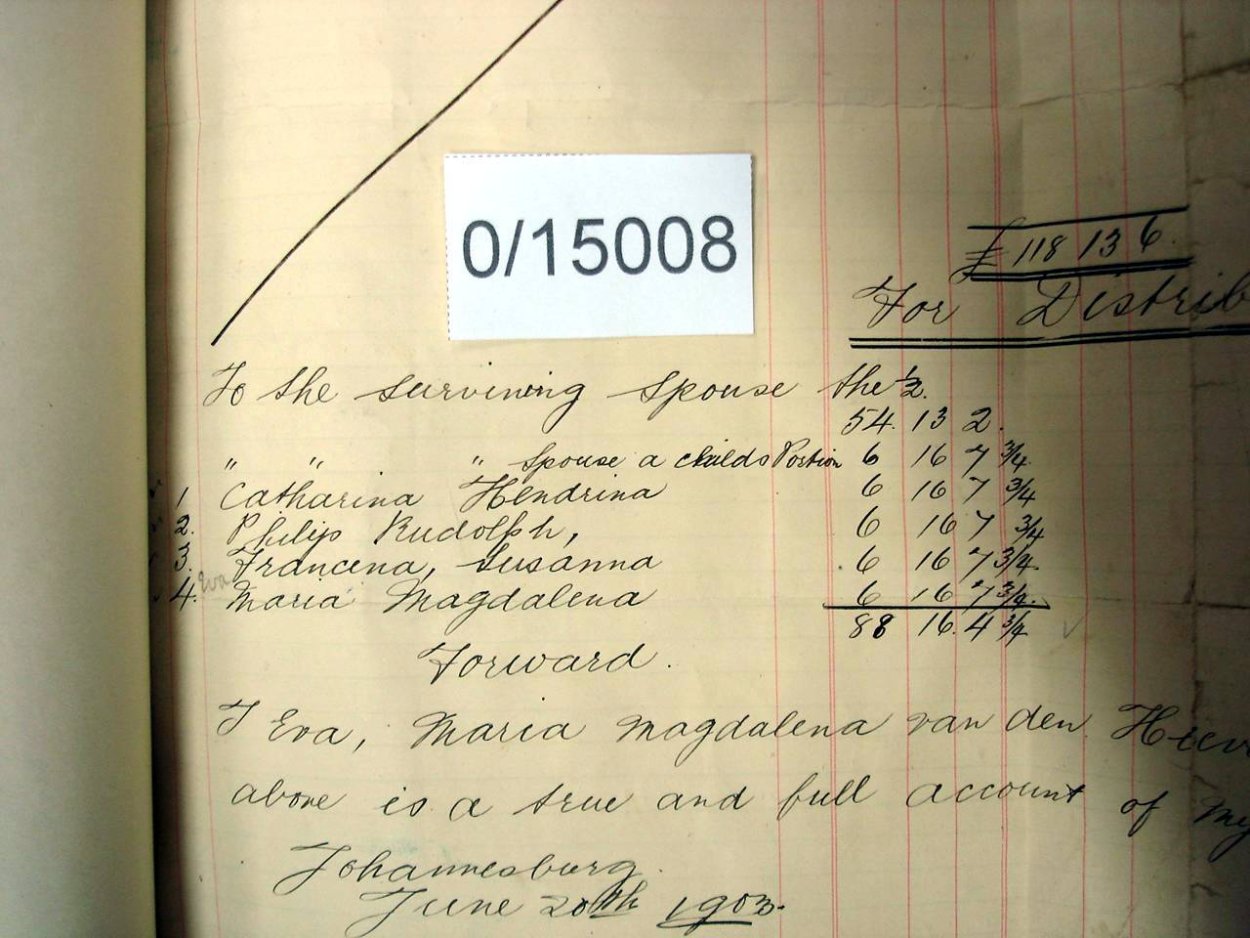 0/15008
£ 118 13 6
For Distrib
To the surviving Spouse the ½.
54. 13 2.
" " " Spouse a childs Portion 6 16 7 ¾
1 Catharina Hendrina 6 16 7 ¾
2. Philip Rudolph, 6 16 7 ¾
3. Francena, Susanna 6 16 7 ¾
4. Eva Maria Magdalena 6 16 7 ¾
88 16. 4 ¾
Forward.
I Eva, Maria Magdalena van den
above is a true and full account of my
Johannesburg.
June 20th 1903.